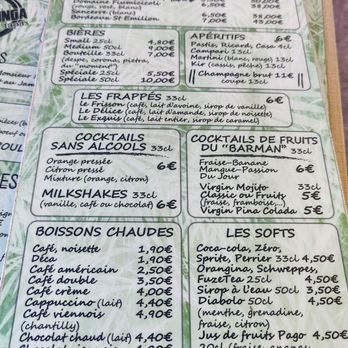 NDA
Domaine Fiumicicoli
(rouge, rosé, blanc)
Sancerre
Bordeaux St Emilion
50cl
6,00€
38,00€
43,00€
38,00€
BIÈRES
Small 25cl 4,80€
Medium 50cl 9,00€
Bouteille 33cl 7,00€
(despe, corona, pietra,
du "moment")
Spéciale 25cl 5,50€
Spéciale 50cl 10,00€
APÉRITIFS 6€
Pastis, Ricard, Casa 4cl
Campari 13cl
Martini (blanc, rouge) 13cl
Kir (cassis, pêche) 13cl
Champagne brut 11€
coupe 13cl
LES FRAPPÉS 33cl 6€
Le Frisson (café, lait d'avoine, sirop de vanille)
Le Délice (café, lait d'amande, sirop de noisette)
Le Exquis (café, lait entier, sirop de caramel)
COCKTAILS
SANS ALCOOLS 33cl
Orange pressée
Citron pressé 6€
Mixture (orange, citron)
MILKSHAKES 33cl
(vanille, café ou chocolat) 6€
COCKTAILS DE FRUITS
DU "BARMAN" 33cl
Fraise-Banane
Mangue-Passion 6€
Du Jour
Virgin Mojito 33cl
Classic ou Fruits 5€
(fraise, framboise...)
Virgin Pina Colada 5€
BOISSONS CHAUDES
Café, noisette 1,90€
Déca 1,90€
Café américain 2,50€
Café double 3,50€
Café crème 4,00€
Cappuccino (lait) 4,00€
Café viennois 4,90€
(chantilly)
Chocolat chaud (lait) 4,40€
LES SOFTS
Coca-cola, Zéro,
Sprite, Perrier 33cl 4,50€
Orangina, Schweppes,
FuzeTea 25cl 4,50€
Sirop à l'eau 50cl 3,50€
Diabolo 50cl 4,50€
(menthe, grenadine,
fraise, citron)
Jus de fruits Pago 4,50€
20cl (fraise, ananas,